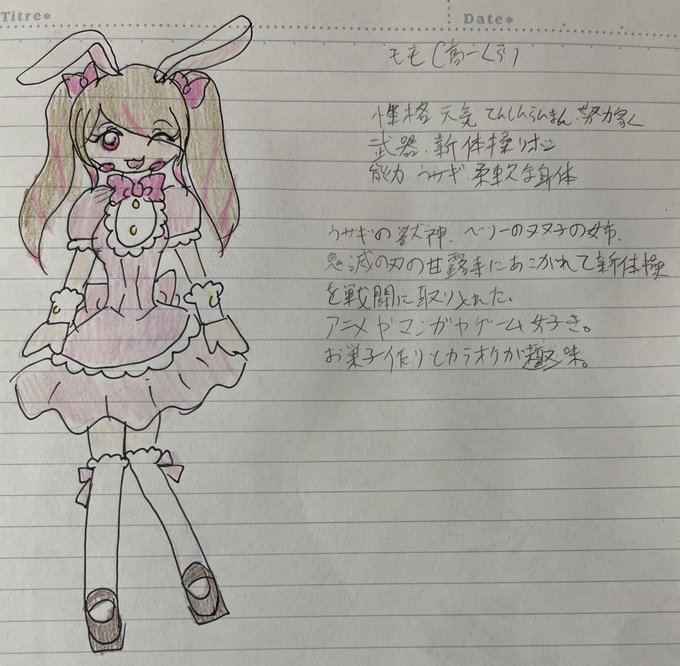 Titre*
Date*
モモ(高一くらい)
性格 元気 てんしんらんまん、努力家
武器、新体操リボン
能力 ウサギ 柔軟な身体
ウサギの獣神、ベリーのヌヌ子の姉、
鬼滅の刃の甘露寺にあこがれて新体操
を戦闘に取り入れた。
アニメやマンガやゲーム好き。
お菓子作りとカラオケが趣味。